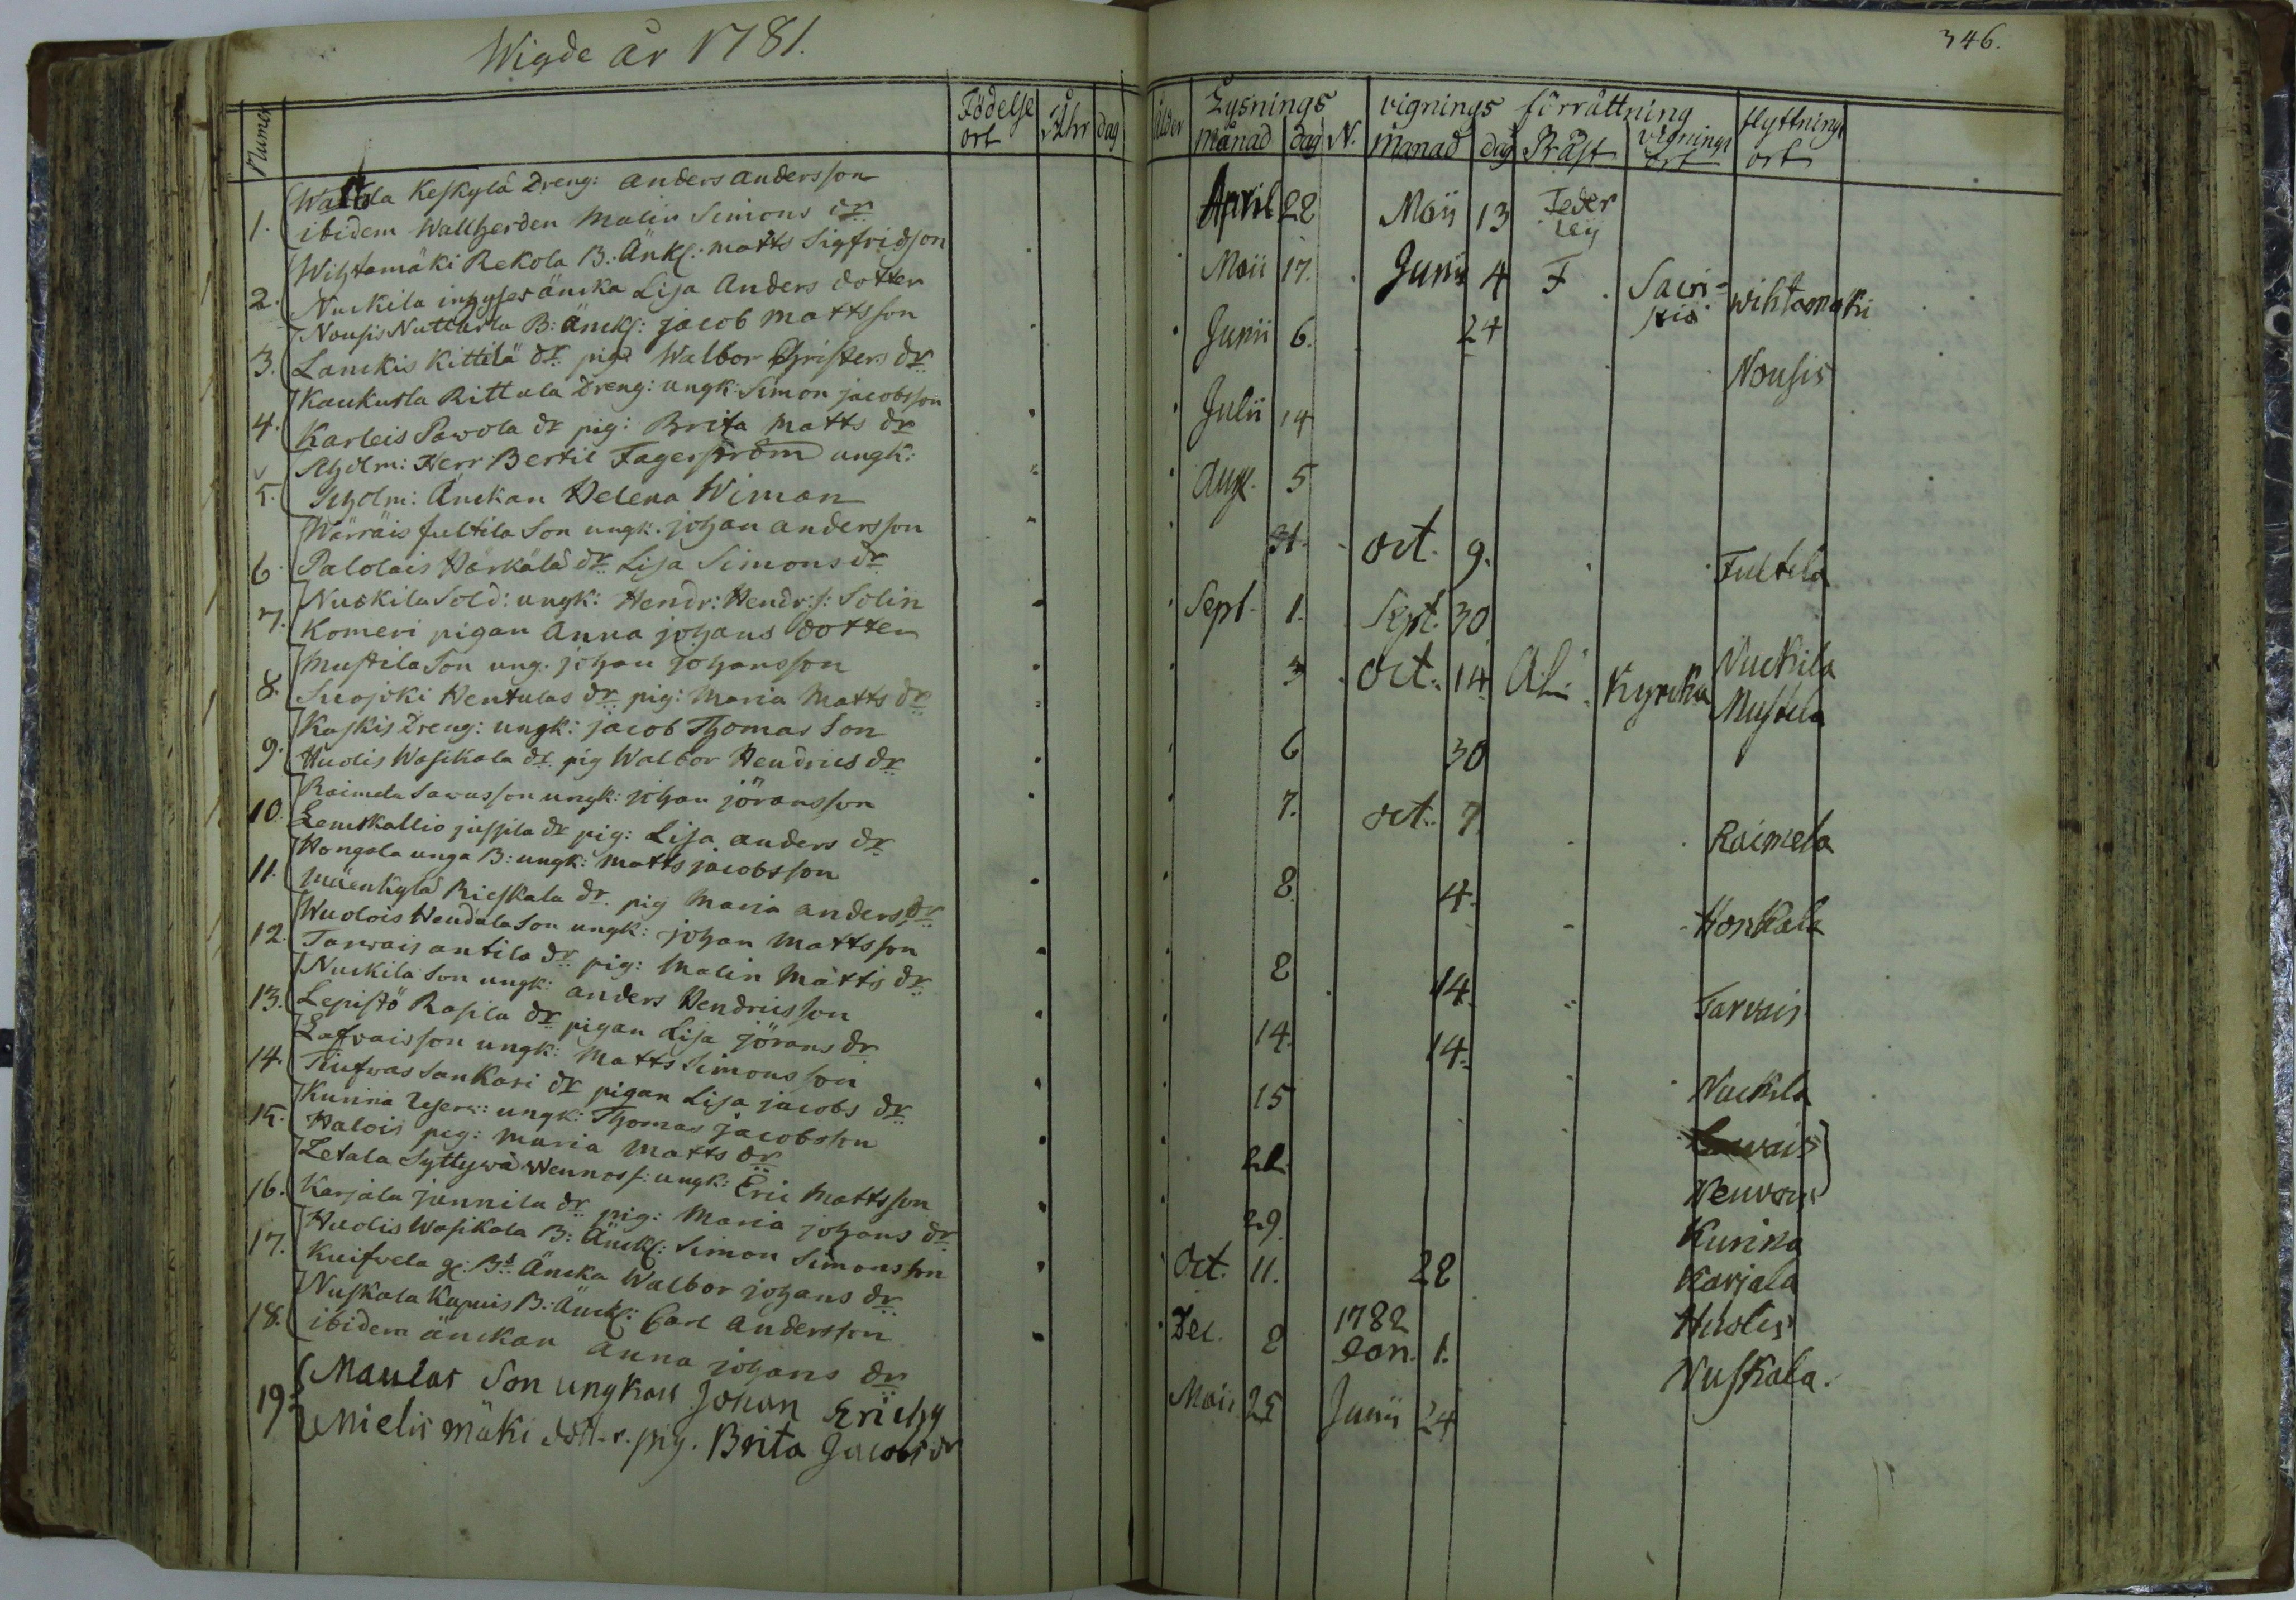 Wigde år 1781.
346.
Numer
Födelse ort
Åhr
dag
Ålder
Lysnings månad dag N.
vignings förrättning
månad dag Präst vignings ort
flyttnings ort
1. Keskylä Dreng: anders andersson
ibidem Wallherden Malin Simons dr
April 22 Maij 13
2. Wihtamäki Rekola B: Änkl: matts Sigfridsson
Nuckila inhyses äncka Lisa Anders dotter
Maii 17. Junii 4 F Sacristia wihtamäki
3. Nousis B: änckl: jacob mattsson
Lanckis Kittilä dr. piga Walbor Christers dr
Junii 6. 24 Nousis
4. Kaukurla Rittula Dreng: ungk: Simon jacobsson
Karleis Pawola dr pig: Brita Matts dr
Julii 14
5. Herr Bertil Fagerström ungk:
Änckan Helena Wiman
Aug. 5
6. Wärräis fultila Son ungk. johan andersson
Palolais Härkälä dr. Lisa Simons dr.
31. Oct. 9. Fultila
7. Nuckila Sold: ungk: Hendr: Hendr: s: Solin
Komeri pigan Anna johans dotter
Sept. 1. Sept. 30 Nuckila
8. Mustila Son ung. johan johansson
Suojoki Hentulas dr. pig: Maria Matts dr
3 Oct. 14 Kyrcka Mustila
9. Kaskis Dreng: ungk: jacob Thomas Son
Huolis Wasikala dr. pig Walbor Hendrics dr
6 30
10. Raimela Sawusson ungk: johan jöransson
Lemskallio jussila dr pig: Lisa anders dr.
7. oct. 7 Raimela
11. Hongola unga B: ungk: Matts jacobsson
Mäenkylä Rieskala dr. pig Maria anders dr
8. 4. Honkala
12. Wuolois Hendala Son ungk: johan Mattsson
Tarwais antila dr. pig: Malin Matts dr.
8 14. Tarvais
13. Nuckila Son ungk: anders Hendricsson
Lepistö Rasila dr pigan Lisa jörans dr
14. 14. Nuckila
14. Lafvaisson ungk: Matts Simonsson
Tiufwas Sankari dr pigan Lisa jacobs dr.
15
15. Kunina ungk: Thomas jacobsson
Halois pig: Maria Matts dr
22. Kunina
16. Letala Syttywä Wennos s: ungk: Eric Mattsson
Karjala junnila dr. pig: Maria johans dr
29. Karjala
17. Huolis Wasikala B: Änckl: Simon Simonsson
Kuifvela gl: Bs: Äncka Walbor johans dr.
Oct. 11. 28 Huolis
18. Nuskala Kapuis B: Änckl: Carl andersson
ibidem änckan Anna johans dr
Dec. 2 1782 Jan. 1. Nuskala.
19. Maulas Son ungkarl Johan Erichs
Mielismäki dott-r. pig. Brita Jacobs dr
Maii 25 Junii 24